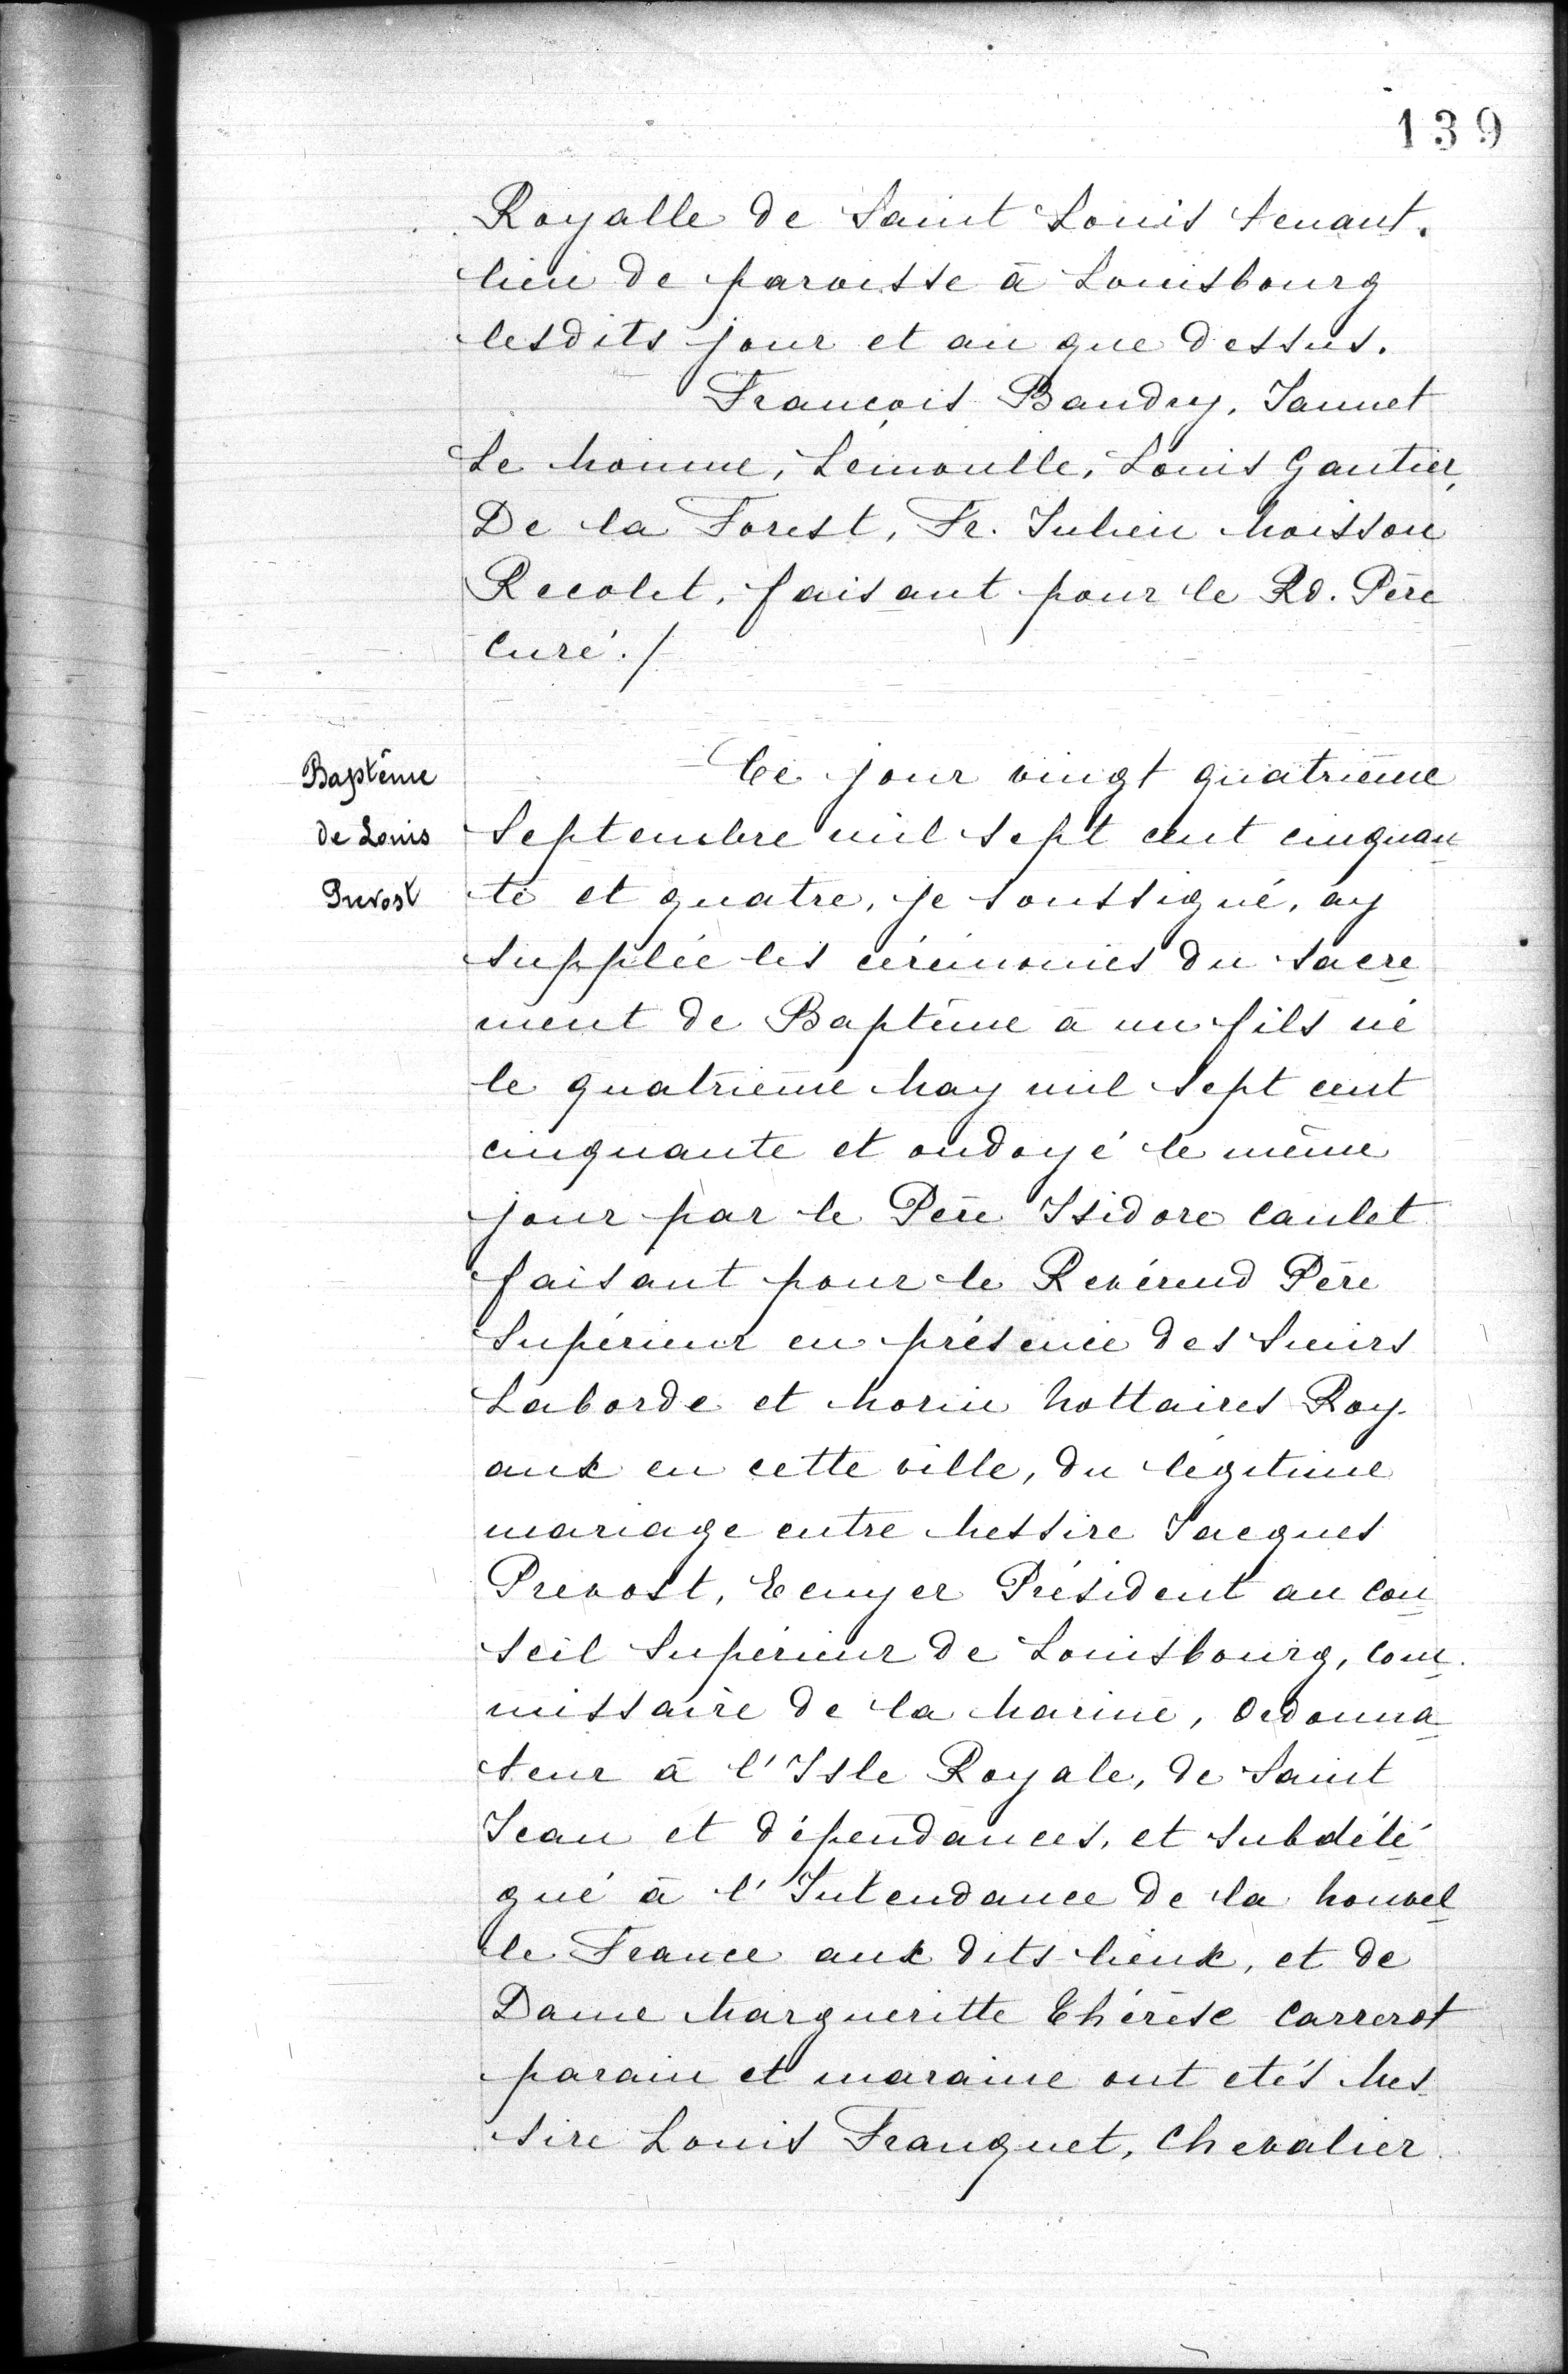 139
Royalle de Saint Louis tenant.
lieu de paroisse à Louisbourg
lesdits jour et an que dessus.
François Baudry, Jannet
Le moinne, Lemoulle, Louis Gautier,
De la Forest, Fr. Julien Moisson
Recolet, faisant pour le Rd. Père
Curé./
Baptême
de Louis
Prevost
Ce jour vingt quatrième
Septembre mil sept cent cinquan
te et quatre, je soussigné, ay
supplée les cérémonies du sacre
ment de Baptême à un fils né
le quatrième May mil sept cent
cinquante et ondoyé le même
jour par le Père Isidore Caulet
faisant pour le Revérend Père
Supérieur en présence des Sieurs
Laborde et Morin Nottaires Roy-
aux en cette ville, du légitime
mariage entre Messire Jacques
Prevost, Ecuyer Président au Con
seil Supérieur de Louisbourg, Com-
missaire de la Marine, Ordonna
teur à l'Isle Royale, de Saint
Jean et dépendances, et subdélé
gué à l'Intendance de la Nouvel
le France aux dits lieux, et de
Dame Margueritte Thérèse Carrerot
parain et maraine ont etés Mes
sire Louis Franquet, Chevalier